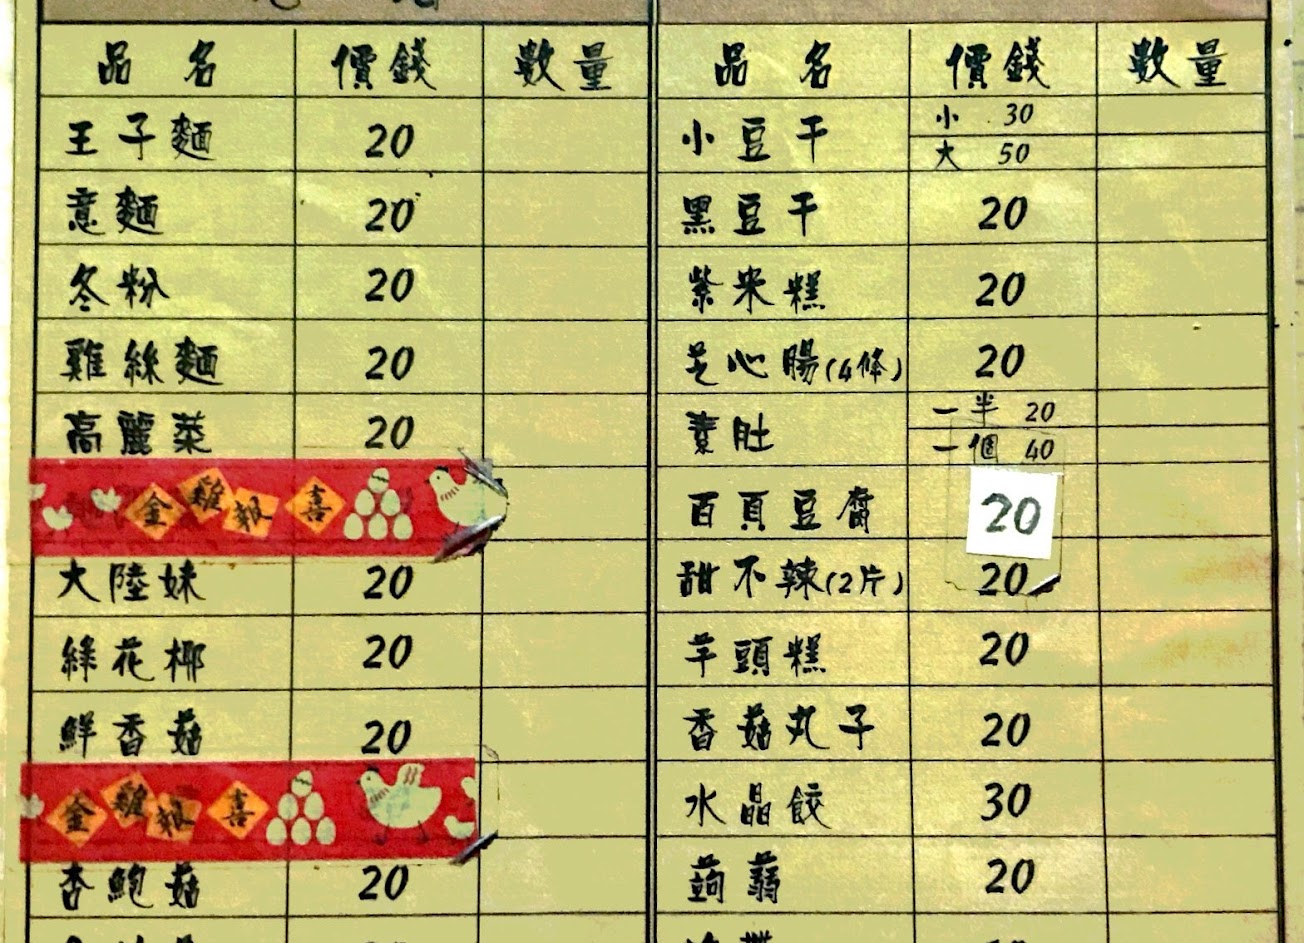 品名 價錢 數量
王子麵 20
意麵 20
冬粉 20
雞絲麵 20
高麗菜 20
金雞報喜
大陸妹 20
綠花椰 20
鮮香菇 20
金雞報喜
杏鮑菇 20
品名 價錢 數量
小豆干 小 30
大 50
黑豆干 20
紫米糕 20
芝心腸(4條) 20
素肚 一半 20
一個 40
百頁豆腐 20
甜不辣(2片) 20
芋頭糕 20
香菇丸子 20
水晶餃 30
蒟蒻 20